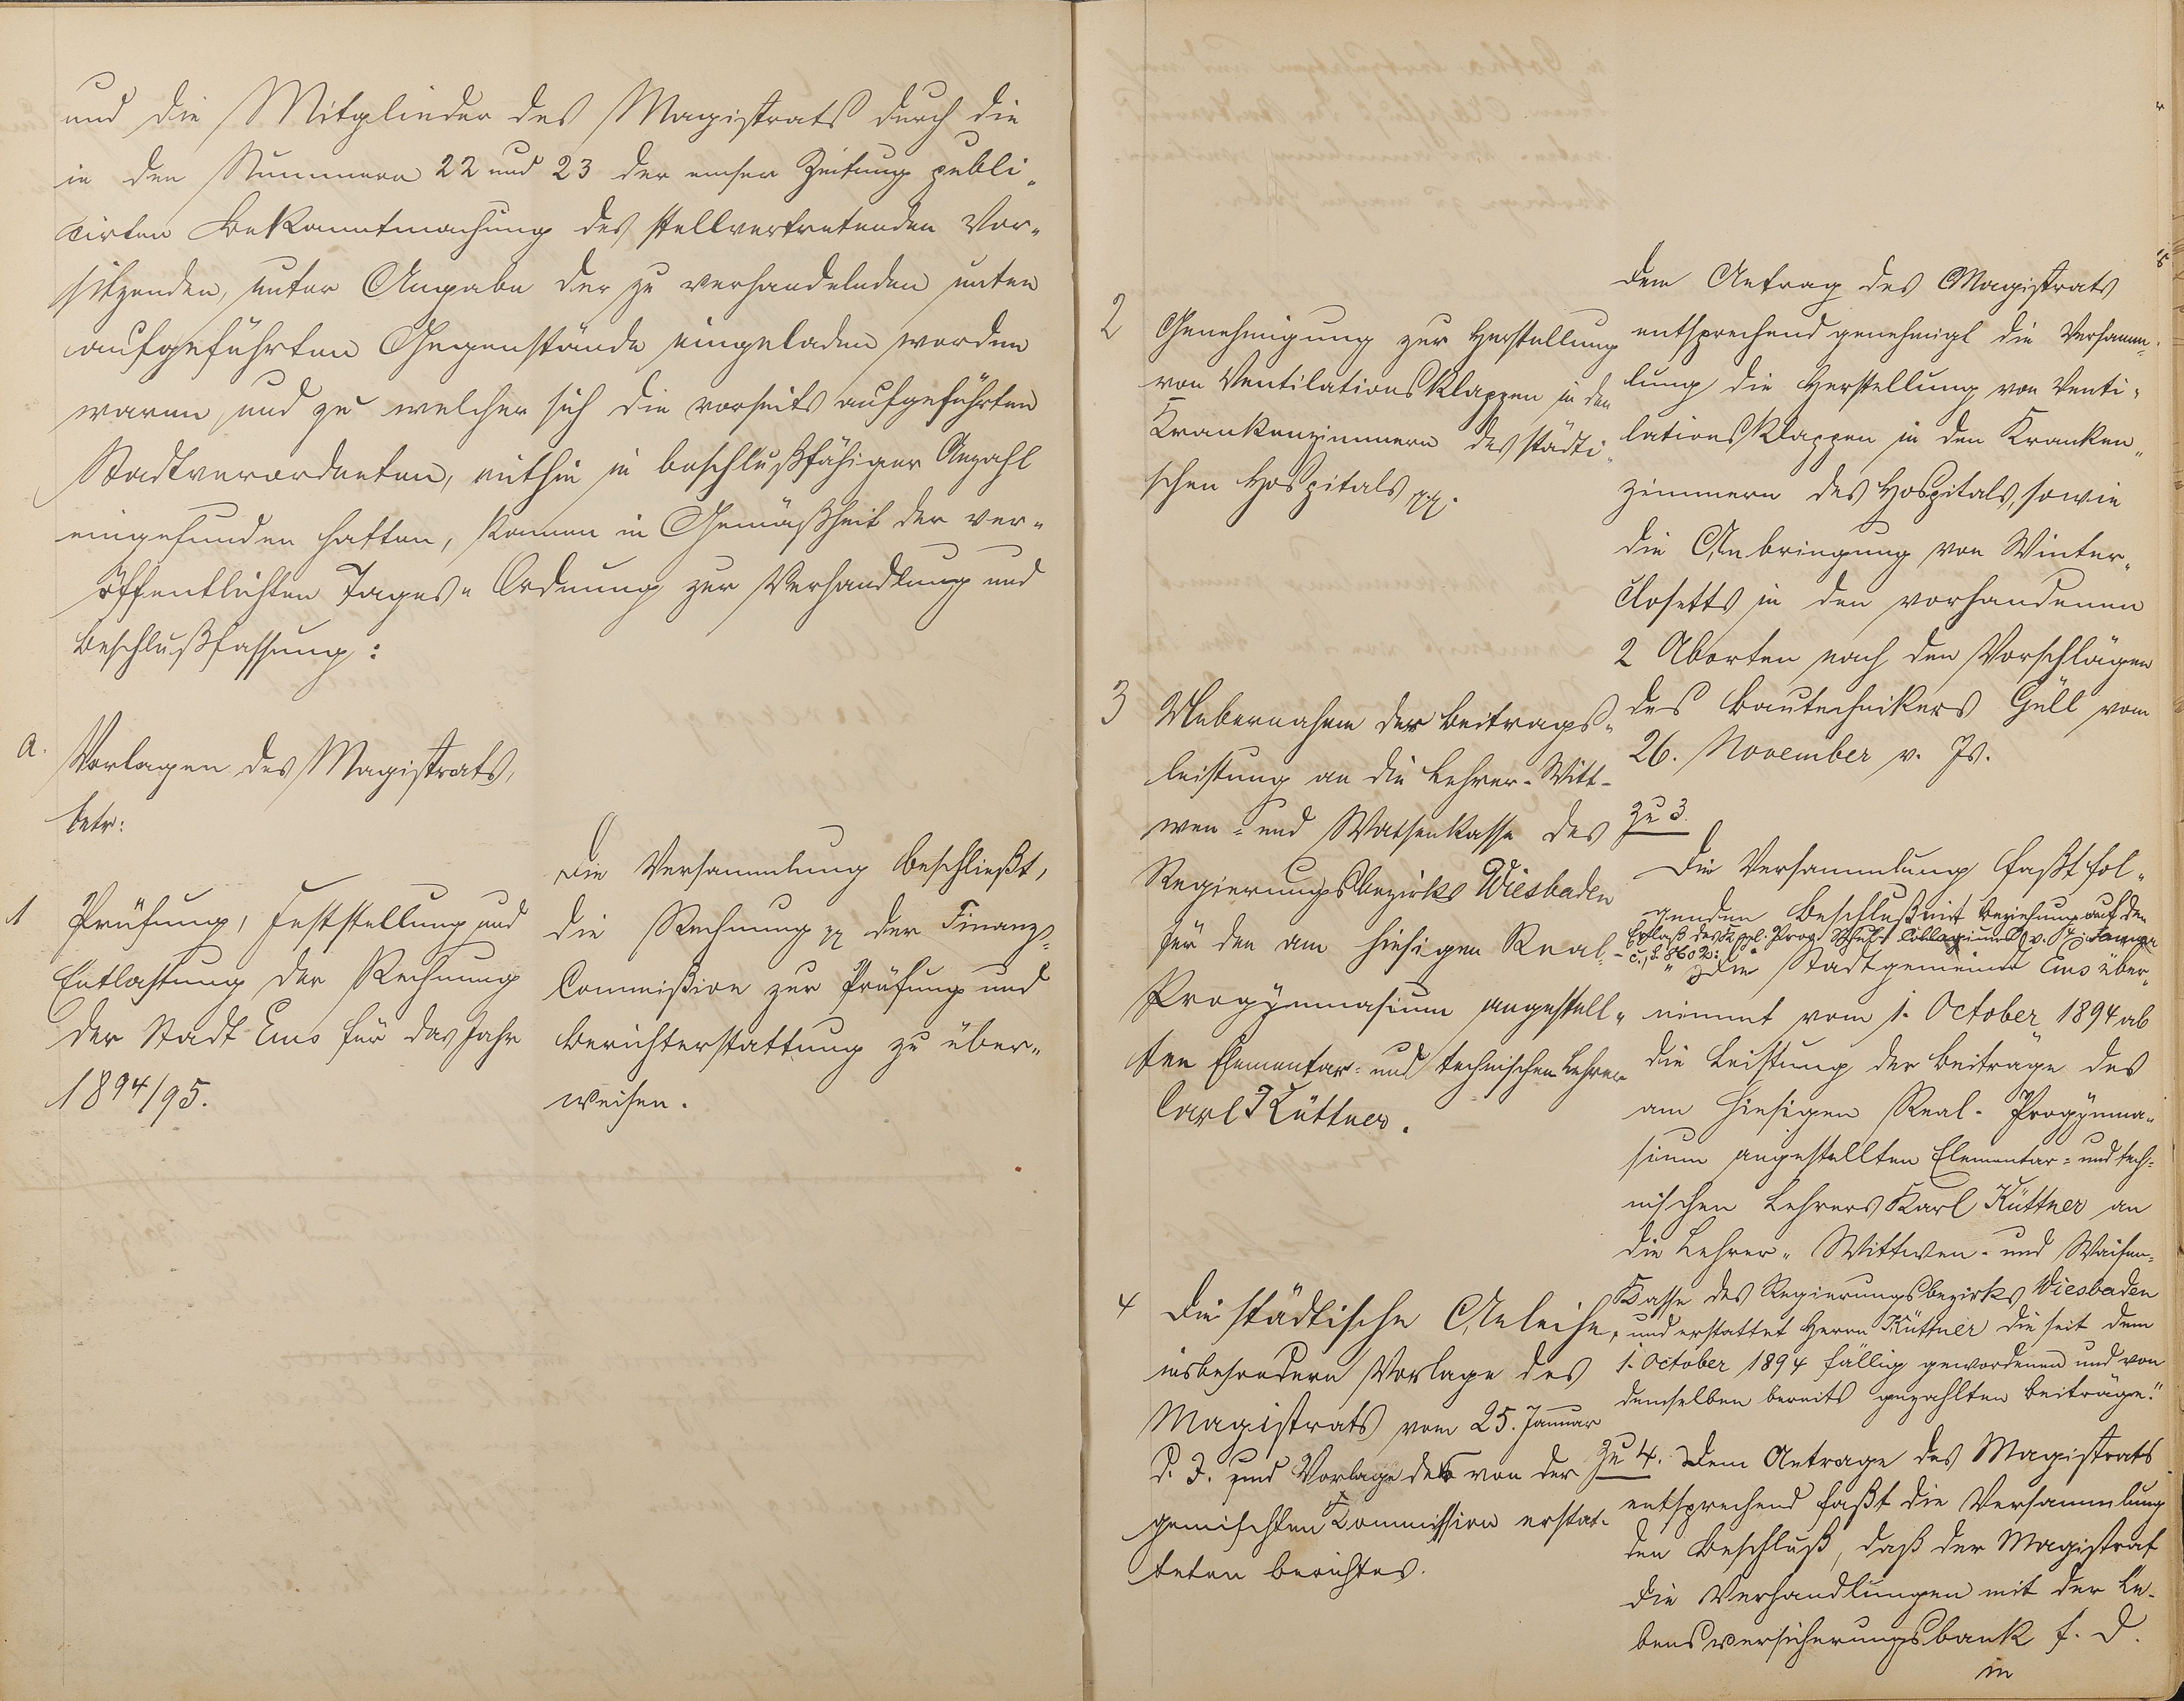 und die Mitglieder des Magistrats durch die
in den Nummern 22 und 23 der emser Zeitung publi-
cirten Bekanntmachung des stellvertretenden Vor-
sitzenden, unter Angabe der zu verhandelnden unten
aufgeführten Gegenstände eingeladen worden
waren, und zu welcher sich die vorseits aufgeführten
Stadtverordneten, mithin in beschlußfähiger Anzahl
eingefunden hatten, kamen in Gemäßheit der ver-
öffentlichten Tages-Ordnung zur Verhandlung und
Beschlußfassung:
a. Vorlagen des Magistrats,
betr:
1 Prüfung, Feststellung und
Entlastung der Rechnung
der Stadt Ems für das Jahr
1894/95.
Die Versammlung beschließt,
die Rechnung pp der Finanz-
Commißion zur Prüfung und
Berichterstattung zu über-
weisen.
2 Genehmigung zur Herstellung
von Ventilationsklappen in den
Krankenzimmern des städti-
schen Hospitals pp.
Dem Antrag des Magistrats
entsprechend genehmigt die Versamm-
lung die Herstellung von Venti-
lationsklappen in den Kranken-
zimmern des Hospitals, sowie
die Anbringung von Winter-
closetts in den vorhandenen
2 Aborten nach den Vorschlägen
des Bautechnikers Güll vom
26. November v. Js.
3 Uebernahme der Beitrags-
leistung an die Lehrer-Witt-
wen- und Waisenkasse des
Regierungsbezirks Wiesbaden
für den am hiesigen Real-
Progymnasium angestell-
ten Elementar- und technischen Lehrer
Carl Küttner.
zu 3.
Die Versammlung faßt fol-
genden Beschluß mit Beziehung auf den
Erlaß des Kgl. Prov. Schul-Collegiums v. Januar
"Die Stadtgemeinde Ems über-
nimmt vom 1. October 1894 ab
die Leistung der Beiträge des
am hiesigen Real-Progymna-
sium angestellten Elementar- und tech-
nischen Lehrers Karl Küttner an
die Lehrer-Wittwen- und Waisen-
Kasse des Regierungsbezirks Wiesbaden
und erstattet Herrn Küttner die seit dem
1. October 1894 fällig gewordenen und von
demselben bereits gezahlten Beiträge."
4 Die städtische Anleihe,
insbesondere Vorlage des
Magistrats vom 25. Januar
d. J. und Vorlage des von der
gemischten Kommission erstat-
teten Berichtes.
zu 4. Dem Antrage des Magistrats
entsprechend faßt die Versammlung
den Beschluß, daß der Magistrat
die Verhandlungen mit der Le-
bensversicherungsbank f. D.
in